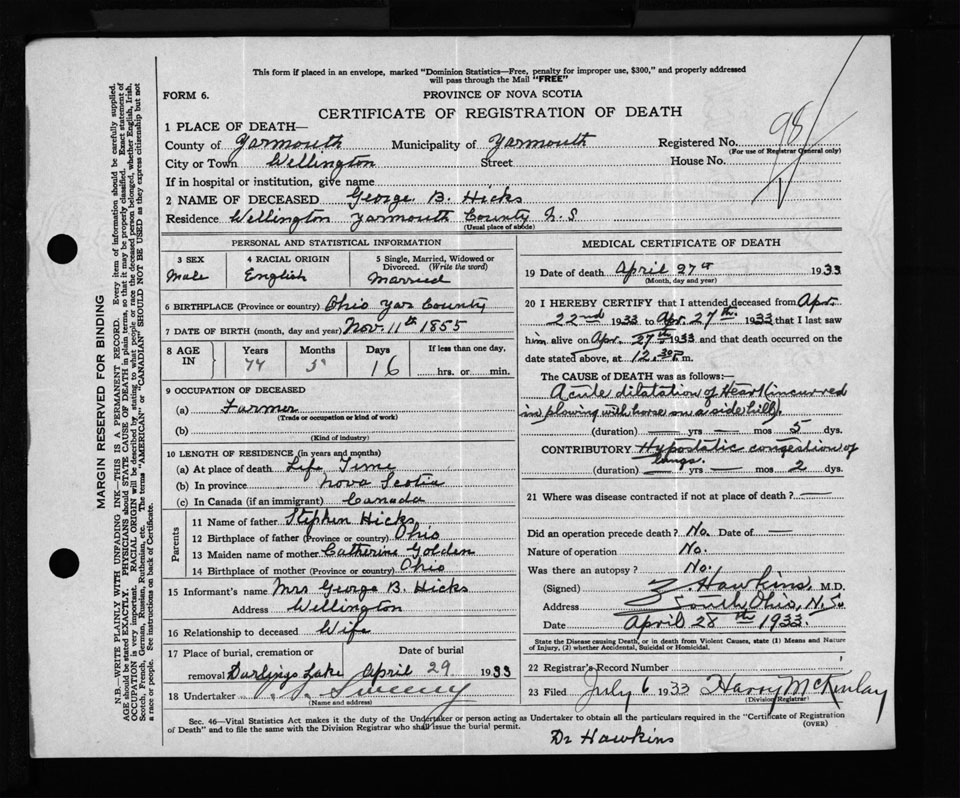 This form if placed in an envelope, marked "Dominion Statistics—Free, penalty for improper use, $300," and properly addressed
will pass through the Mail "FREE"
FORM 6.
PROVINCE OF NOVA SCOTIA
CERTIFICATE OF REGISTRATION OF DEATH
1 PLACE OF DEATH—
County of Yarmouth Municipality of Yarmouth Registered No. 98
(For use of Registrar General only)
City or Town Wellington Street House No.
If in hospital or institution, give name
2 NAME OF DECEASED George B. Hicks
Residence Wellington Yarmouth County N.S
(Usual place of abode)
PERSONAL AND STATISTICAL INFORMATION
3 SEX 4 RACIAL ORIGIN 5 Single, Married, Widowed or
Divorced. (Write the word)
Male English Married
6 BIRTHPLACE (Province or country) Ohio Yar County
7 DATE OF BIRTH (month, day and year) Nov. 11th 1855
8 AGE IN Years Months Days If less than one day,
77 5 16 hrs. or min.
9 OCCUPATION OF DECEASED
(a) Farmer
(Trade or occupation or kind of work)
(b)
(Kind of industry)
10 LENGTH OF RESIDENCE (in years and months)
(a) At place of death Life Time
(b) In province Nova Scotia
(c) In Canada (if an immigrant) Canada
Parents
11 Name of father Stephen Hicks
12 Birthplace of father (Province or country) Ohio
13 Maiden name of mother Catherine Golden
14 Birthplace of mother (Province or country) Ohio
15 Informant's name Mrs George B. Hicks
Address Wellington
16 Relationship to deceased Wife
17 Place of burial, cremation or Date of burial
removal Darlings Lake April 29 1933
18 Undertaker Sweeny
(Name and address)
MEDICAL CERTIFICATE OF DEATH
19 Date of death April 27th 1933
(Month, day and year)
20 I HEREBY CERTIFY that I attended deceased from Apr
22nd 1933 to Apr. 27th 1933 that I last saw
him alive on Apr. 27th 1933 and that death occurred on the
date stated above, at 12.30 P.m.
The CAUSE of DEATH was as follows:—
Acute dilatation of Heart (incurred
in plowing with horse on a side hill).
(duration) — yrs — mos 5 dys.
CONTRIBUTORY Hypostatic congestion of
lungs.
(duration) — yrs — mos 2 dys.
21 Where was disease contracted if not at place of death? —
Did an operation precede death? No. Date of —
Nature of operation No.
Was there an autopsy? No.
(Signed) Z. Hawkins, M.D.
Address South Ohio, N.S.
Date April 28th 1933.
State the Disease causing Death, or in death from Violent Causes, state (1) Means and Nature
of Injury, (2) whether Accidental, Suicidal or Homicidal.
22 Registrar's Record Number
23 Filed July 6 1933 Harry McKinlay
(Division Registrar)
Sec. 46—Vital Statistics Act makes it the duty of the Undertaker or person acting as Undertaker to obtain all the particulars required in the "Certificate of Registration
of Death" and to file the same with the Division Registrar who shall issue the burial permit. (OVER)
Dr Hawkins
MARGIN RESERVED FOR BINDING
N.B.—WRITE PLAINLY WITH UNFADING INK.—THIS IS A PERMANENT RECORD. Every item of information should be carefully supplied.
AGE should be stated EXACTLY. PHYSICIANS should STATE CAUSE OF DEATH in plain terms, so that it may be properly classified. Exact statement of
OCCUPATION is very important. RACIAL ORIGIN will be described by stating to what people or race the deceased person belonged, whether English, Irish,
Scotch, French, German, Russian, Ruthenian, etc. The terms "AMERICAN" or "CANADIAN" SHOULD NOT BE USED as they express citizenship but not
a race or people. See instructions on back of Certificate.